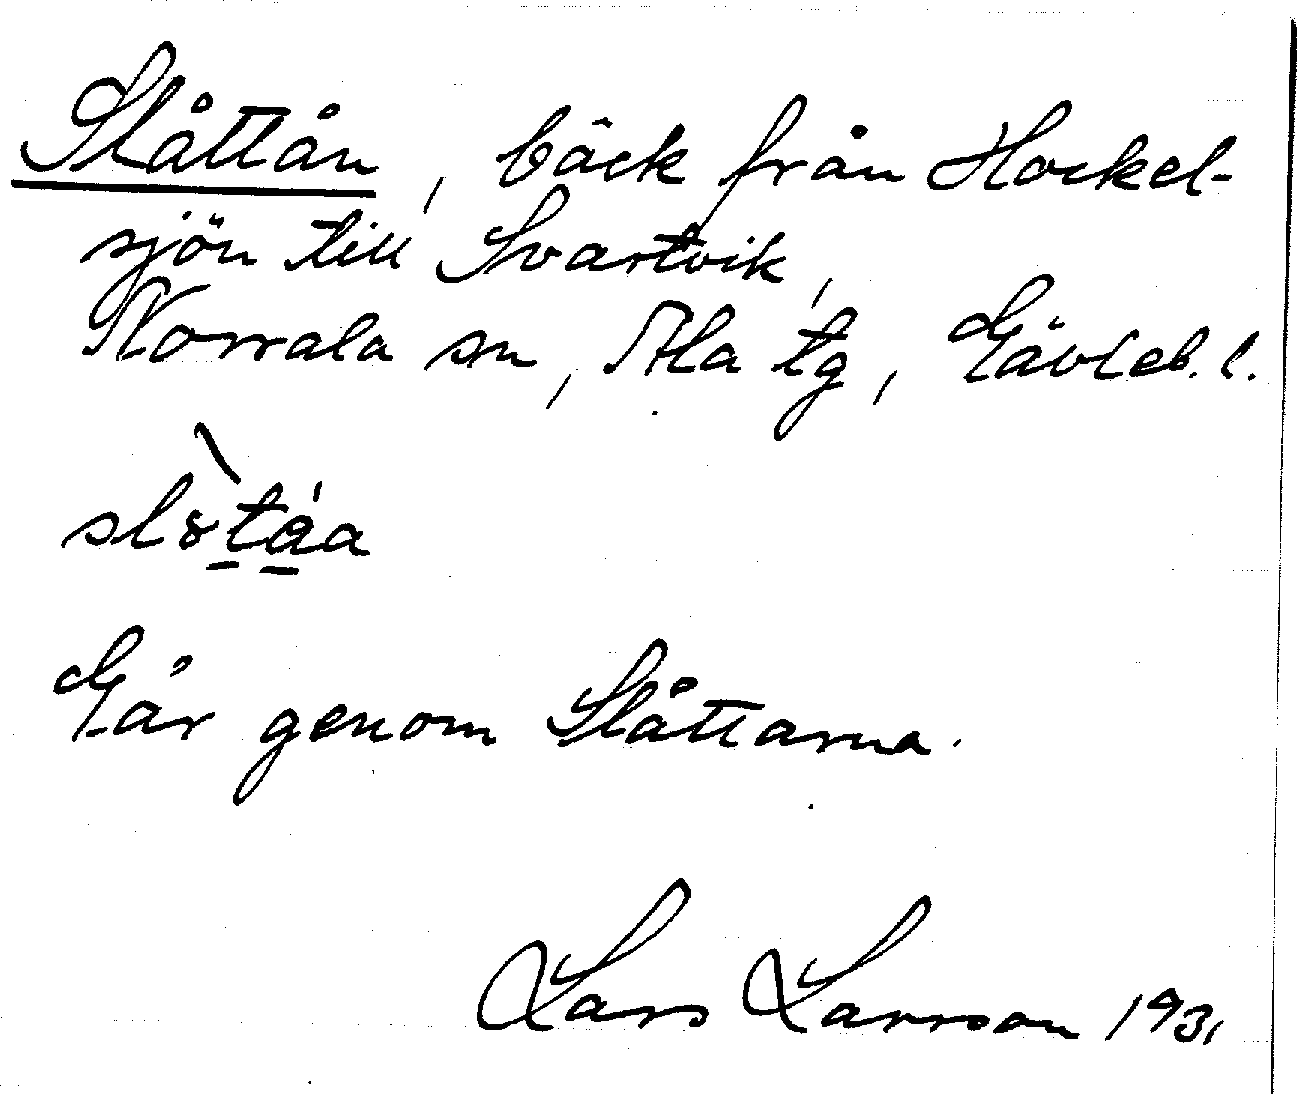 Slåttån, bäck från Hockel-
sjön till Svartvik,
Norrala sn, Ala tg, Gävleb. l.
slòtáa
Går genom Slåttarna.
Lars Larsson 1931